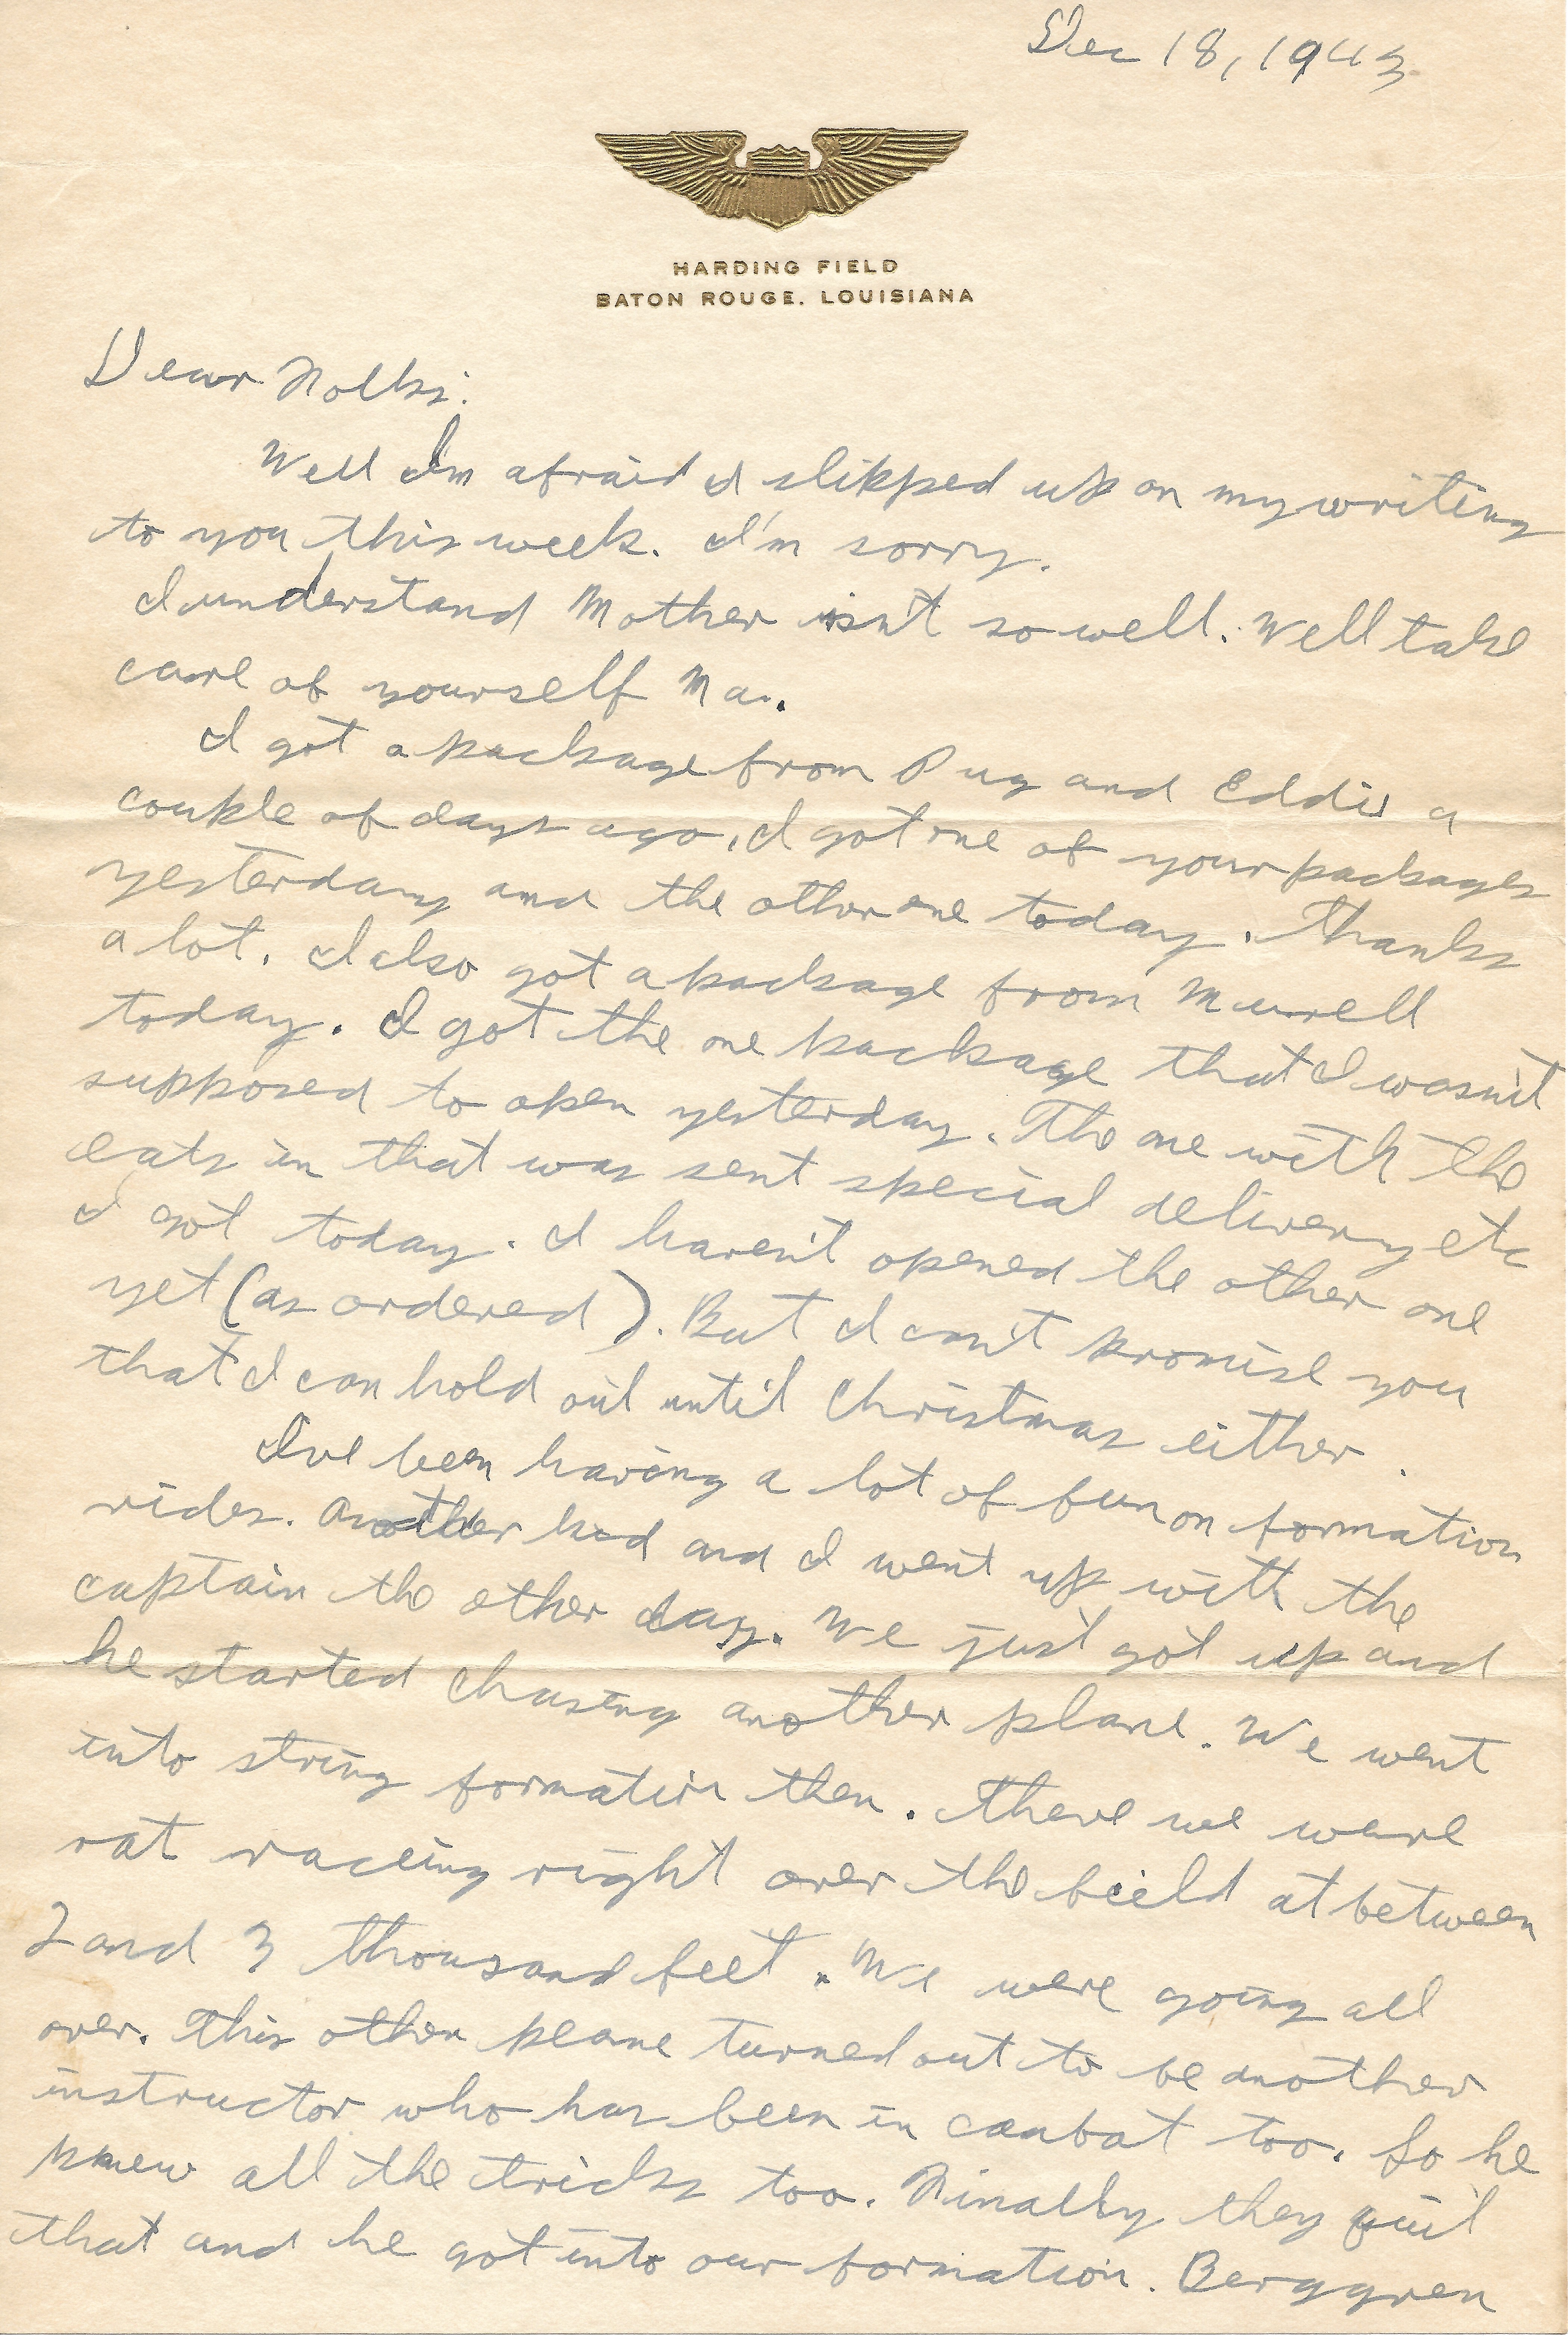 Dec 18, 1943
HARDING FIELD
BATON ROUGE, LOUISIANA
Dear Folks:
Well I'm afraid I slipped up on my writing
to you this week. I'm sorry.
I understand Mother isn't so well. Well take
care of yourself Ma.
I got a package from Pug and Eddie a
couple of days ago, I got one of your packages
yesterday and the other one today. Thanks
a lot. I also got a package from Murrell
today. I got the one package that I wasn't
supposed to open yesterday. The one with the
eats in that was sent special delivery etc
I got today. I haven't opened the other one
yet (as ordered). But I can't promise you
that I can hold out until Christmas either.
I've been having a lot of fun on formation
rides. Another kid and I went up with the
captain the other day. We just got up and
he started chasing another plane. We went
into string formation then. There we were
rat raceing right over the field at between
2 and 3 thousand feet. We were going all
over. This other plane turned out to be another
instructor who has been in combat too. So he
knew all the tricks too. Finally they quit
that and he got into our formation. Berggren